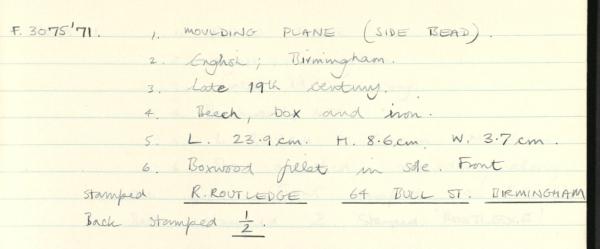 F. 3075'71. 1. MOULDING PLANE (SIDE BEAD).
2. English; Birmingham.
3. Late 19th century.
4. Beech, box and iron.
5. L. 23.9cm. H. 8.6cm. W. 3.7cm.
6. Boxwood fillet in sole. Front
stamped R. ROUTLEDGE 64 BULL ST. BIRMINGHAM
Back stamped 1/2.